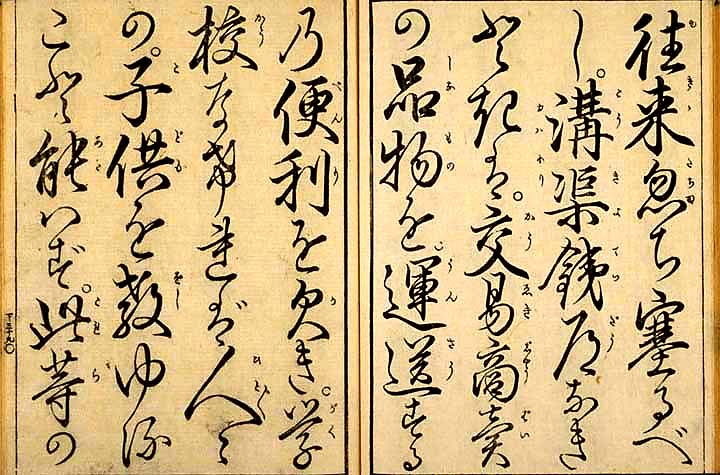 往来忽ち塞るべ
し。溝渠鉄道なき
ときは。交易商売
の品物を。運送する
の便利を欠き。学
校なければ人々
の子供を教ゆる
こと能はず。此等の